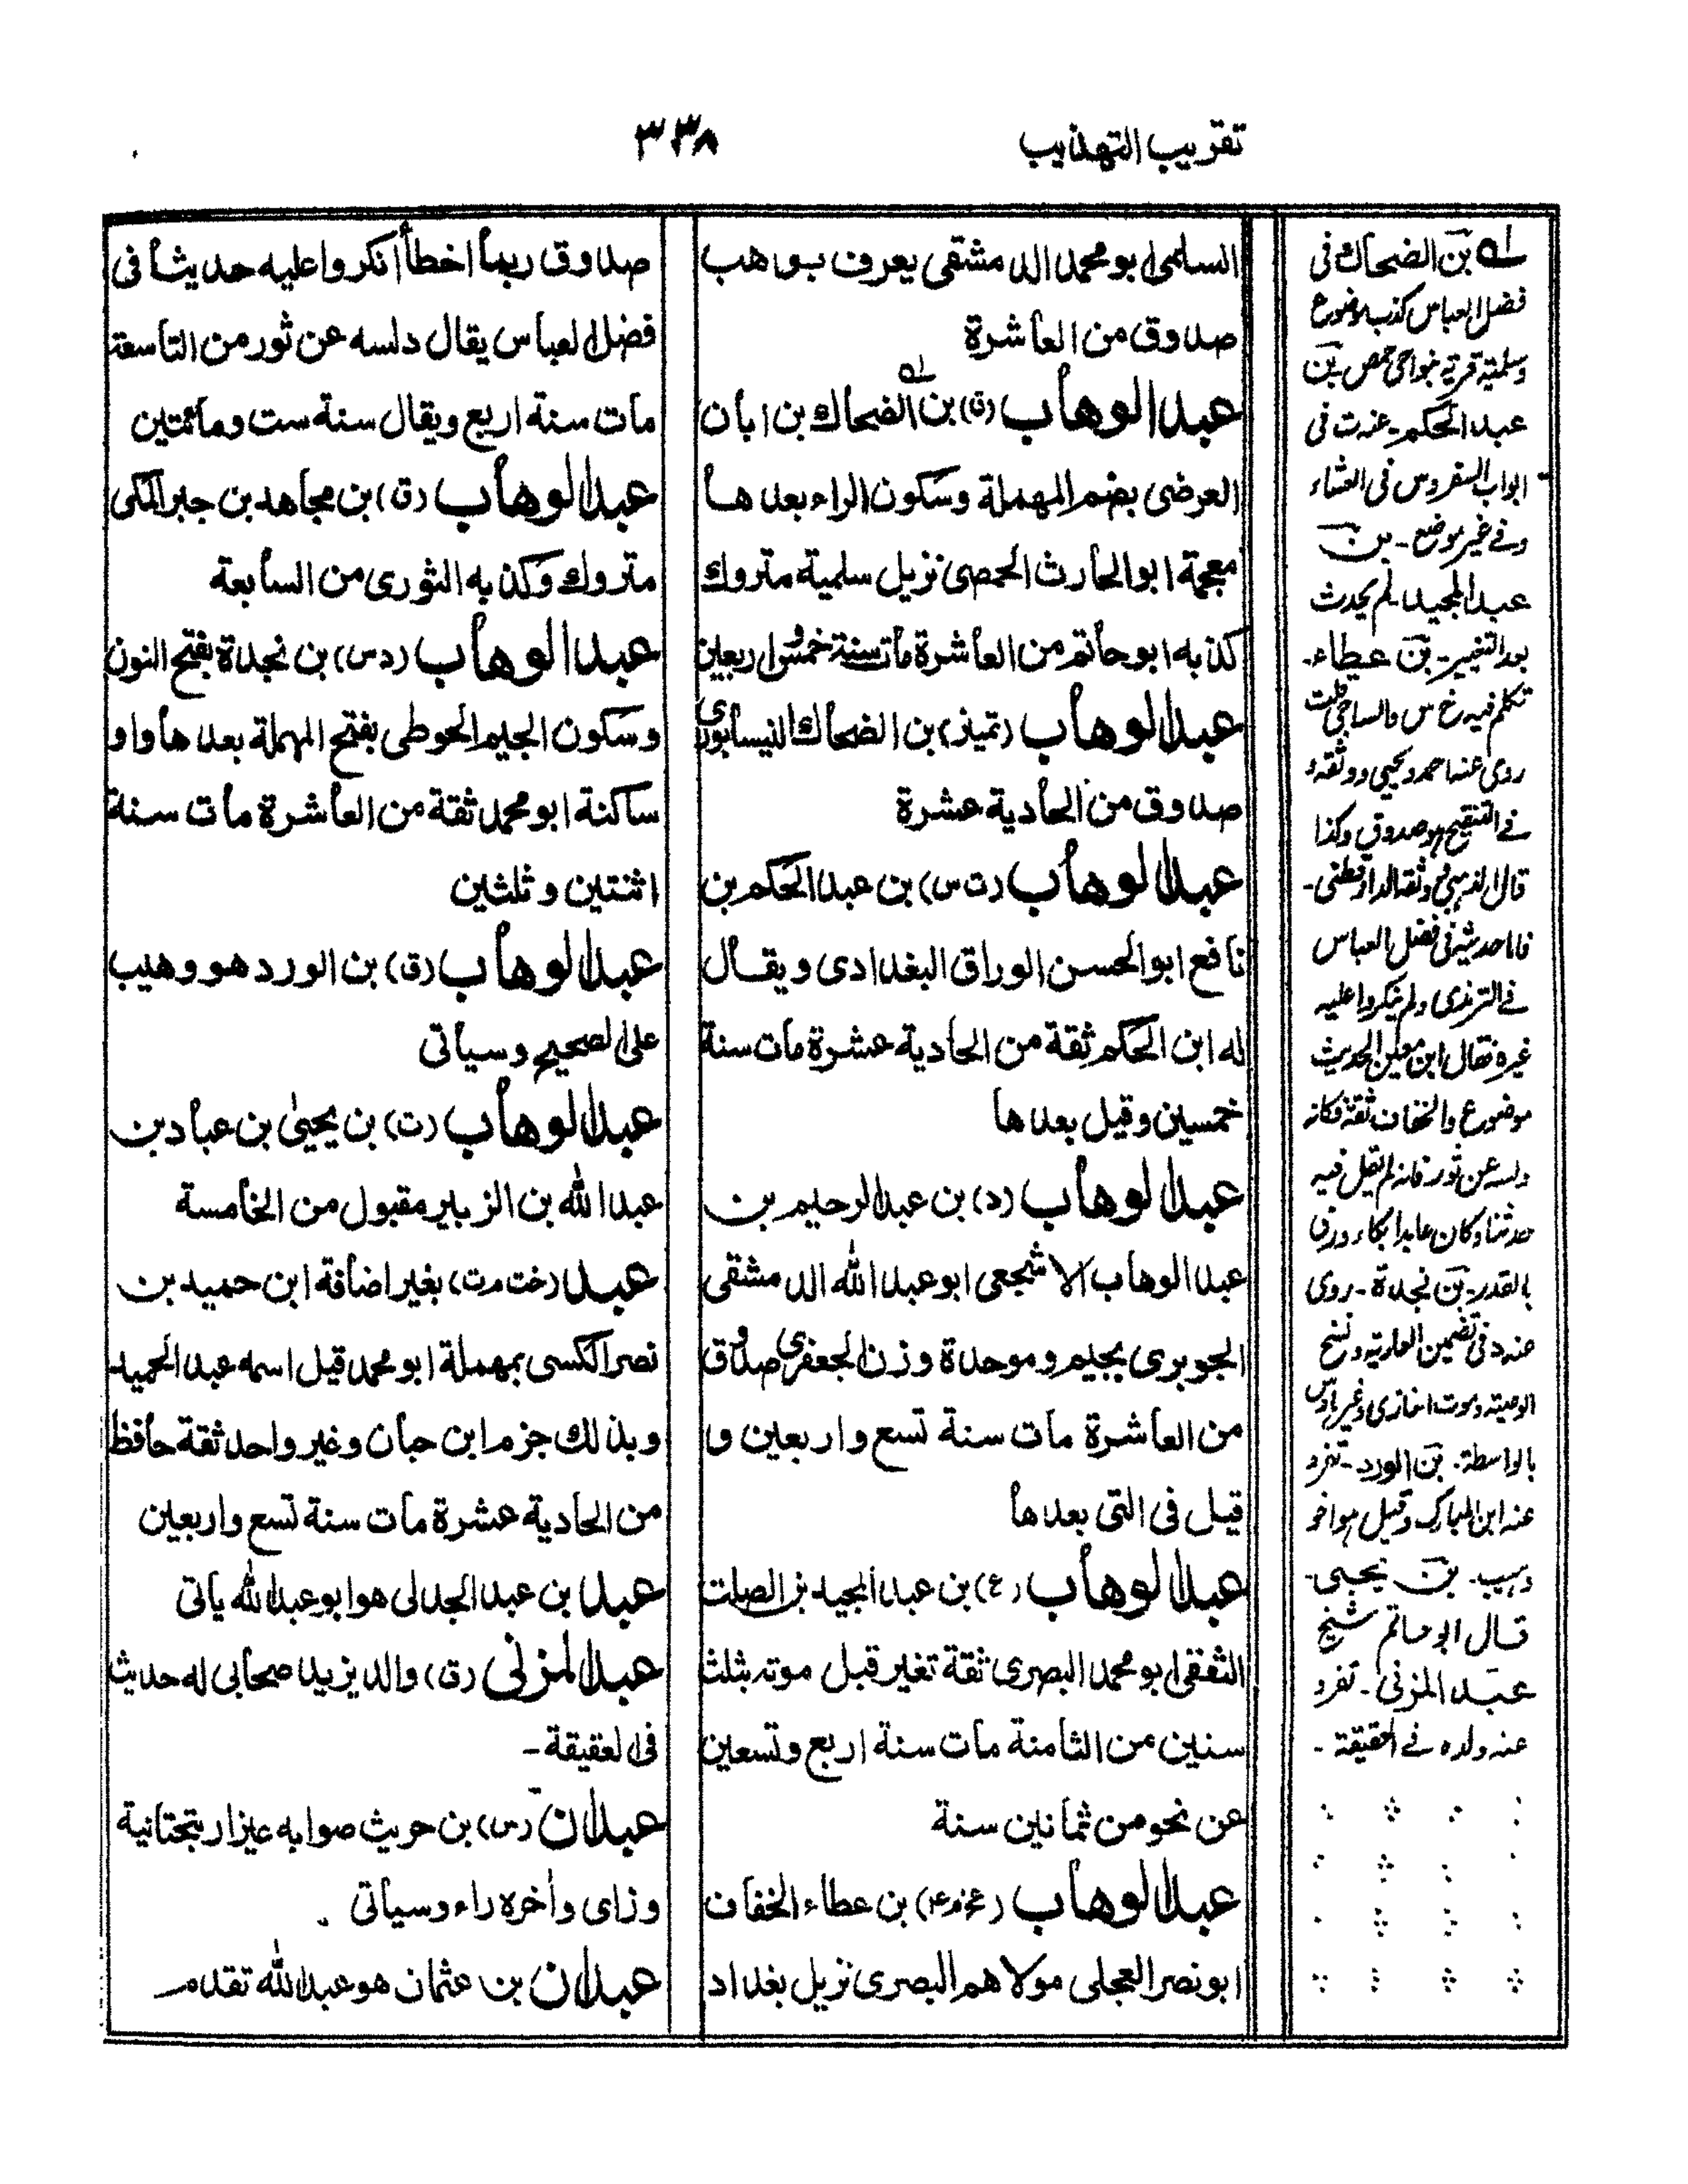 تقريب التهذيب
٣٣٨
السلمى ابو محمد الدمشقى يعرف بوهب
صدوق من العاشرة
عبد الوهاب (ق) بن الضحاك بن ابان
العرضى بضم المهملة وسكون الراء بعدها
معجمة ابو الحارث الحمصى نزيل سلمية متروك
كذبه ابو حاتم من العاشرة مات سنة خمس و اربعين
عبد الوهاب (تميز) بن الضحاك النيسابورى
صدوق من الحادية عشرة
عبد الوهاب (ت س) بن عبد الحكم بن
نافع ابو الحسن الوراق البغدادى ويقال
له ابن الحكم ثقة من الحادية عشرة مات سنة
خمسين وقيل بعدها
عبد الوهاب (د) بن عبد الرحيم بن
عبد الوهاب الاشجعى ابو عبد الله الدمشقى
الجوبرى بجيم وموحدة وزن الجعفرى صدوق
من العاشرة مات سنة تسع واربعين و
قيل فى التى بعدها
عبد الوهاب (ع) بن عبد المجيد بن الصلت
الثقفى ابو محمد البصرى ثقة تغير قبل موته بثلث
سنين من الثامنة مات سنة اربع وتسعين
عن نحو من ثمانين سنة
عبد الوهاب (عخ م ع) بن عطاء الخفاف
ابو نصر العجلى مولاهم البصرى نزيل بغداد
صدوق ربما اخطأ انكروا عليه حديثا فى
فضل العباس يقال دلسه عن ثور من التاسعة
مات سنة اربع ويقال سنة ست ومائتين
عبد الوهاب (ق) بن مجاهد بن جبر المكى
متروك وكذبه الثورى من السابعة
عبد الوهاب (د س) بن نجدة بفتح النون
وسكون الجيم الحوطى بفتح المهملة بعدها واو
ساكنة ابو محمد ثقة من العاشرة مات سنة
اثنتين وثلثين
عبد الوهاب (ق) بن الورد هو وهيب
على الصحيح وسياتى
عبد الوهاب (ت) بن يحيىٰ بن عباد بن
عبد الله بن الزبير مقبول من الخامسة
عبد (خت م ت) بغير اضافة ابن حميد بن
نصر الكسى بمهملة ابو محمد قيل اسمه عبد الحميد
وبذلك جزم ابن حبان وغير واحد ثقة حافظ
من الحادية عشرة مات سنة تسع واربعين
عبد بن عبد الجدلى هو ابو عبد الله ياتى
عبد المزنى (ق) والد يزيد صحابى له حديث
فى العقيقة -
عبدان (س) بن حريث صوابه عيزار بتحتانية
وزاى وأخره راء وسياتى
عبدان بن عثمان هو عبد الله تقدم
له بن الضحاك فى
فضل العباس كذب موضوع
وسلمية قرية بنواحى حمص بن
عبد الحكم - عنه ت فى
ابواب السفر وس فى العشاء
وفے غير موضع - بن
عبد المجيد لم يحدث
بعد التغيير - بن عطاء -
تكلم فيه خ س والساجى قلت
روى عنه احمد ويحيى ووثقه و
فے التنقيح هو صدوق وكذا
قال الذهبى وثقه الدارقطنى -
فاما حديثه فى فضل العباس
فے الترمذى ولم ينكروا عليه
غيره فقال ابن معين الحديث
موضوع والخفاف ثقة فكانه
دلسه عن ثور فانه لم يقل فيه
حدثنا وكان عابدا بكاء ورمى
بالقدر - بن نجدة - روى
عنه د فى تضمين العارية ونسخ
الوصية وموت الغازى وغيرها وس
بالواسطة - بن الورد - تفرد
عنه ابن المبارك وقيل هو اخو
وهيب - بن يحيى -
قال ابو حاتم شيخ
عبد المزنى - تفرد
عنه ولده فے العقيقة -